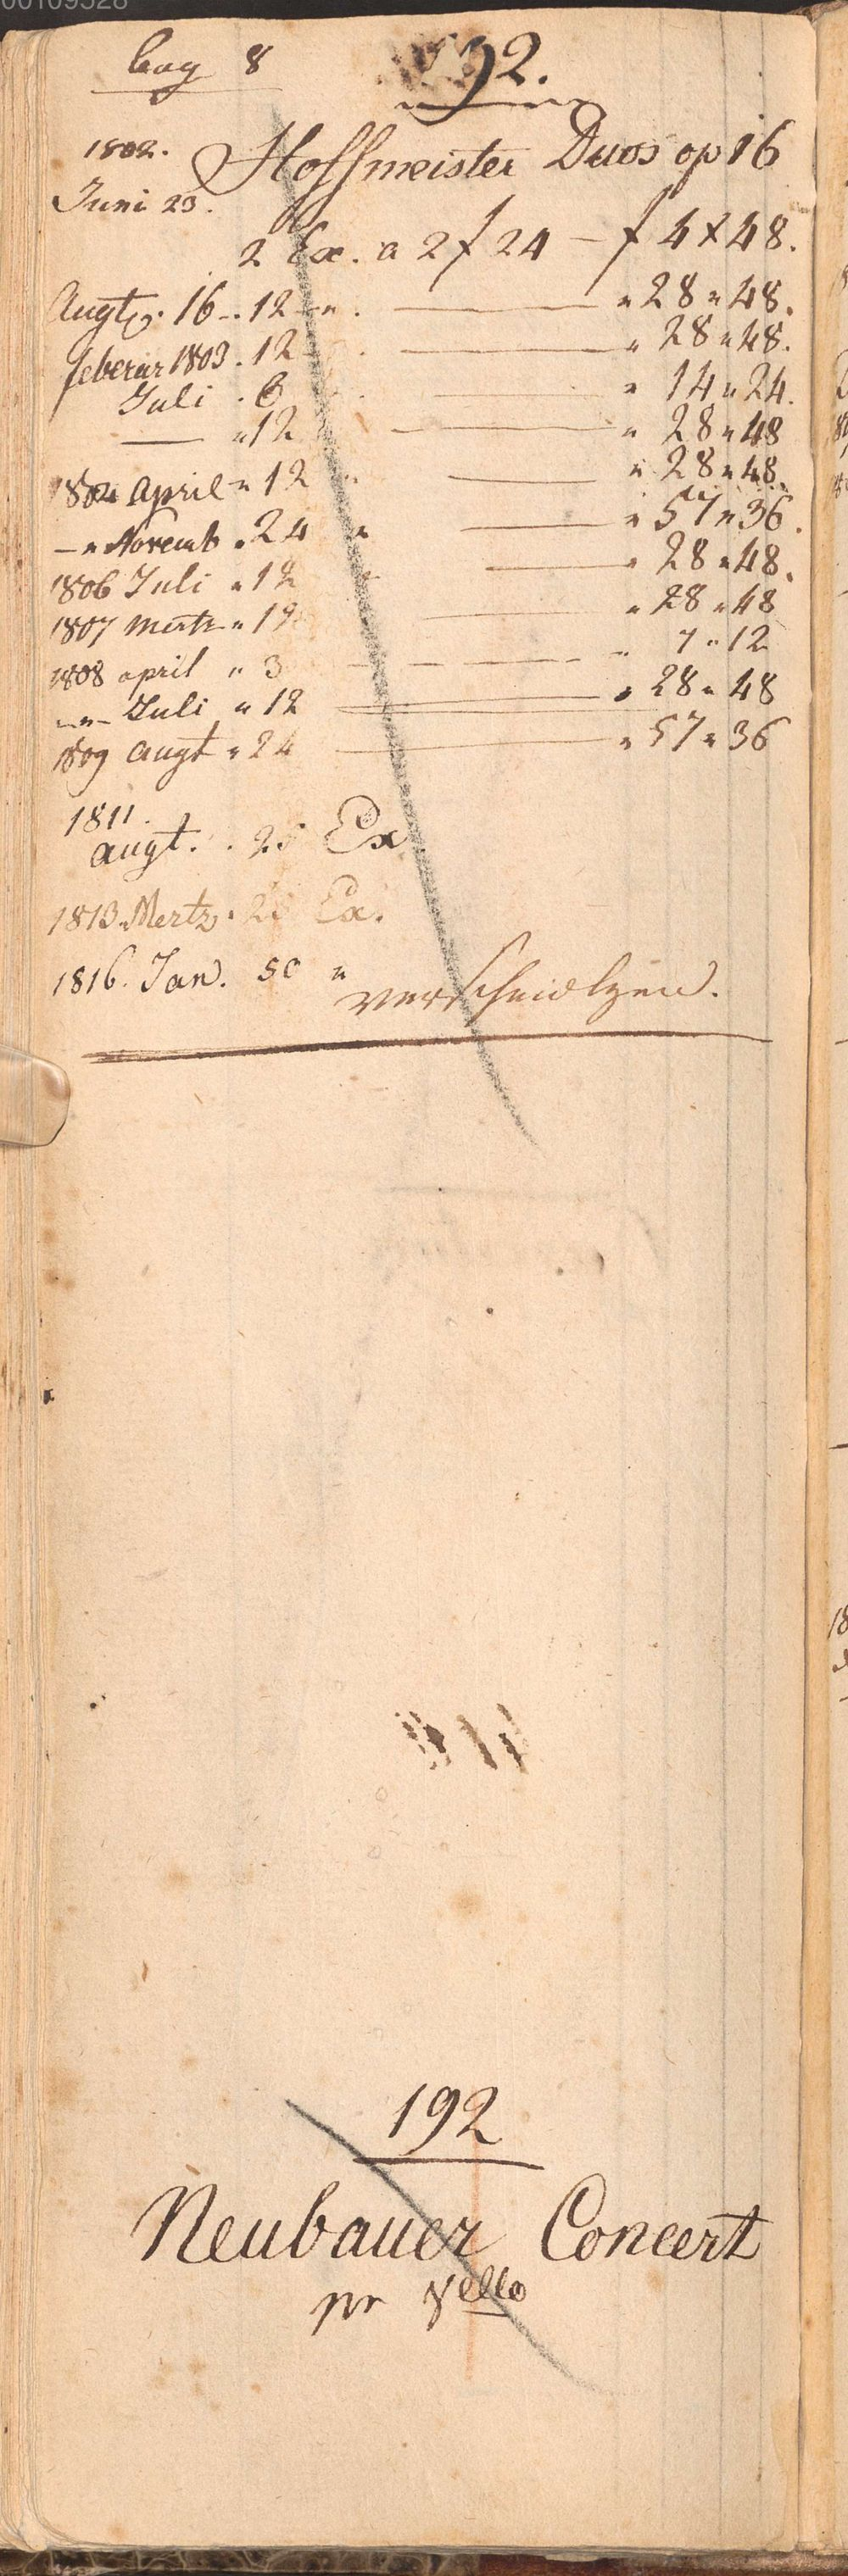 00109528
bog 8
92.
1802. Hoffmeister Duos op 16
Juni 23.
2 Ex. a 2 f 24 — f 4 x 48.
Augt. 16 - . 12 - " . — " 28 " 48.
feberar 1803 . 12 — " 28 " 48.
Juli . 6 — " 14 " 24.
— " 12 — " 28 " 48
1804 April " 12 " — " 28 " 48.
— " Novemb . 24 " — " 57 " 36.
1806 Juli " 12 — " 28 " 48.
1807 Mertz " 12 — " 28 " 48
1808 april " 3 — " 7 " 12
— " — Juli " 12 — " 28 " 48
1809 Augt " 24 — " 57 " 36
1811.
augt. . 25 Ex
1813 Mertz . 25 Ex.
1816. Jan. 50 "
verschmolzen.
192
Neubauer Concert
pr Vcllo